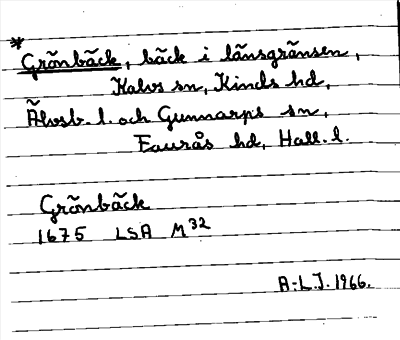 *
Grönbäck, bäck i länsgränsen,
Kalvs sn, Kinds hd,
Älvsb. l. och Gunnarps sn,
Faurås hd, Hall. l.
Grönbäck
1675 LSA M32
A-L.J. 1966.